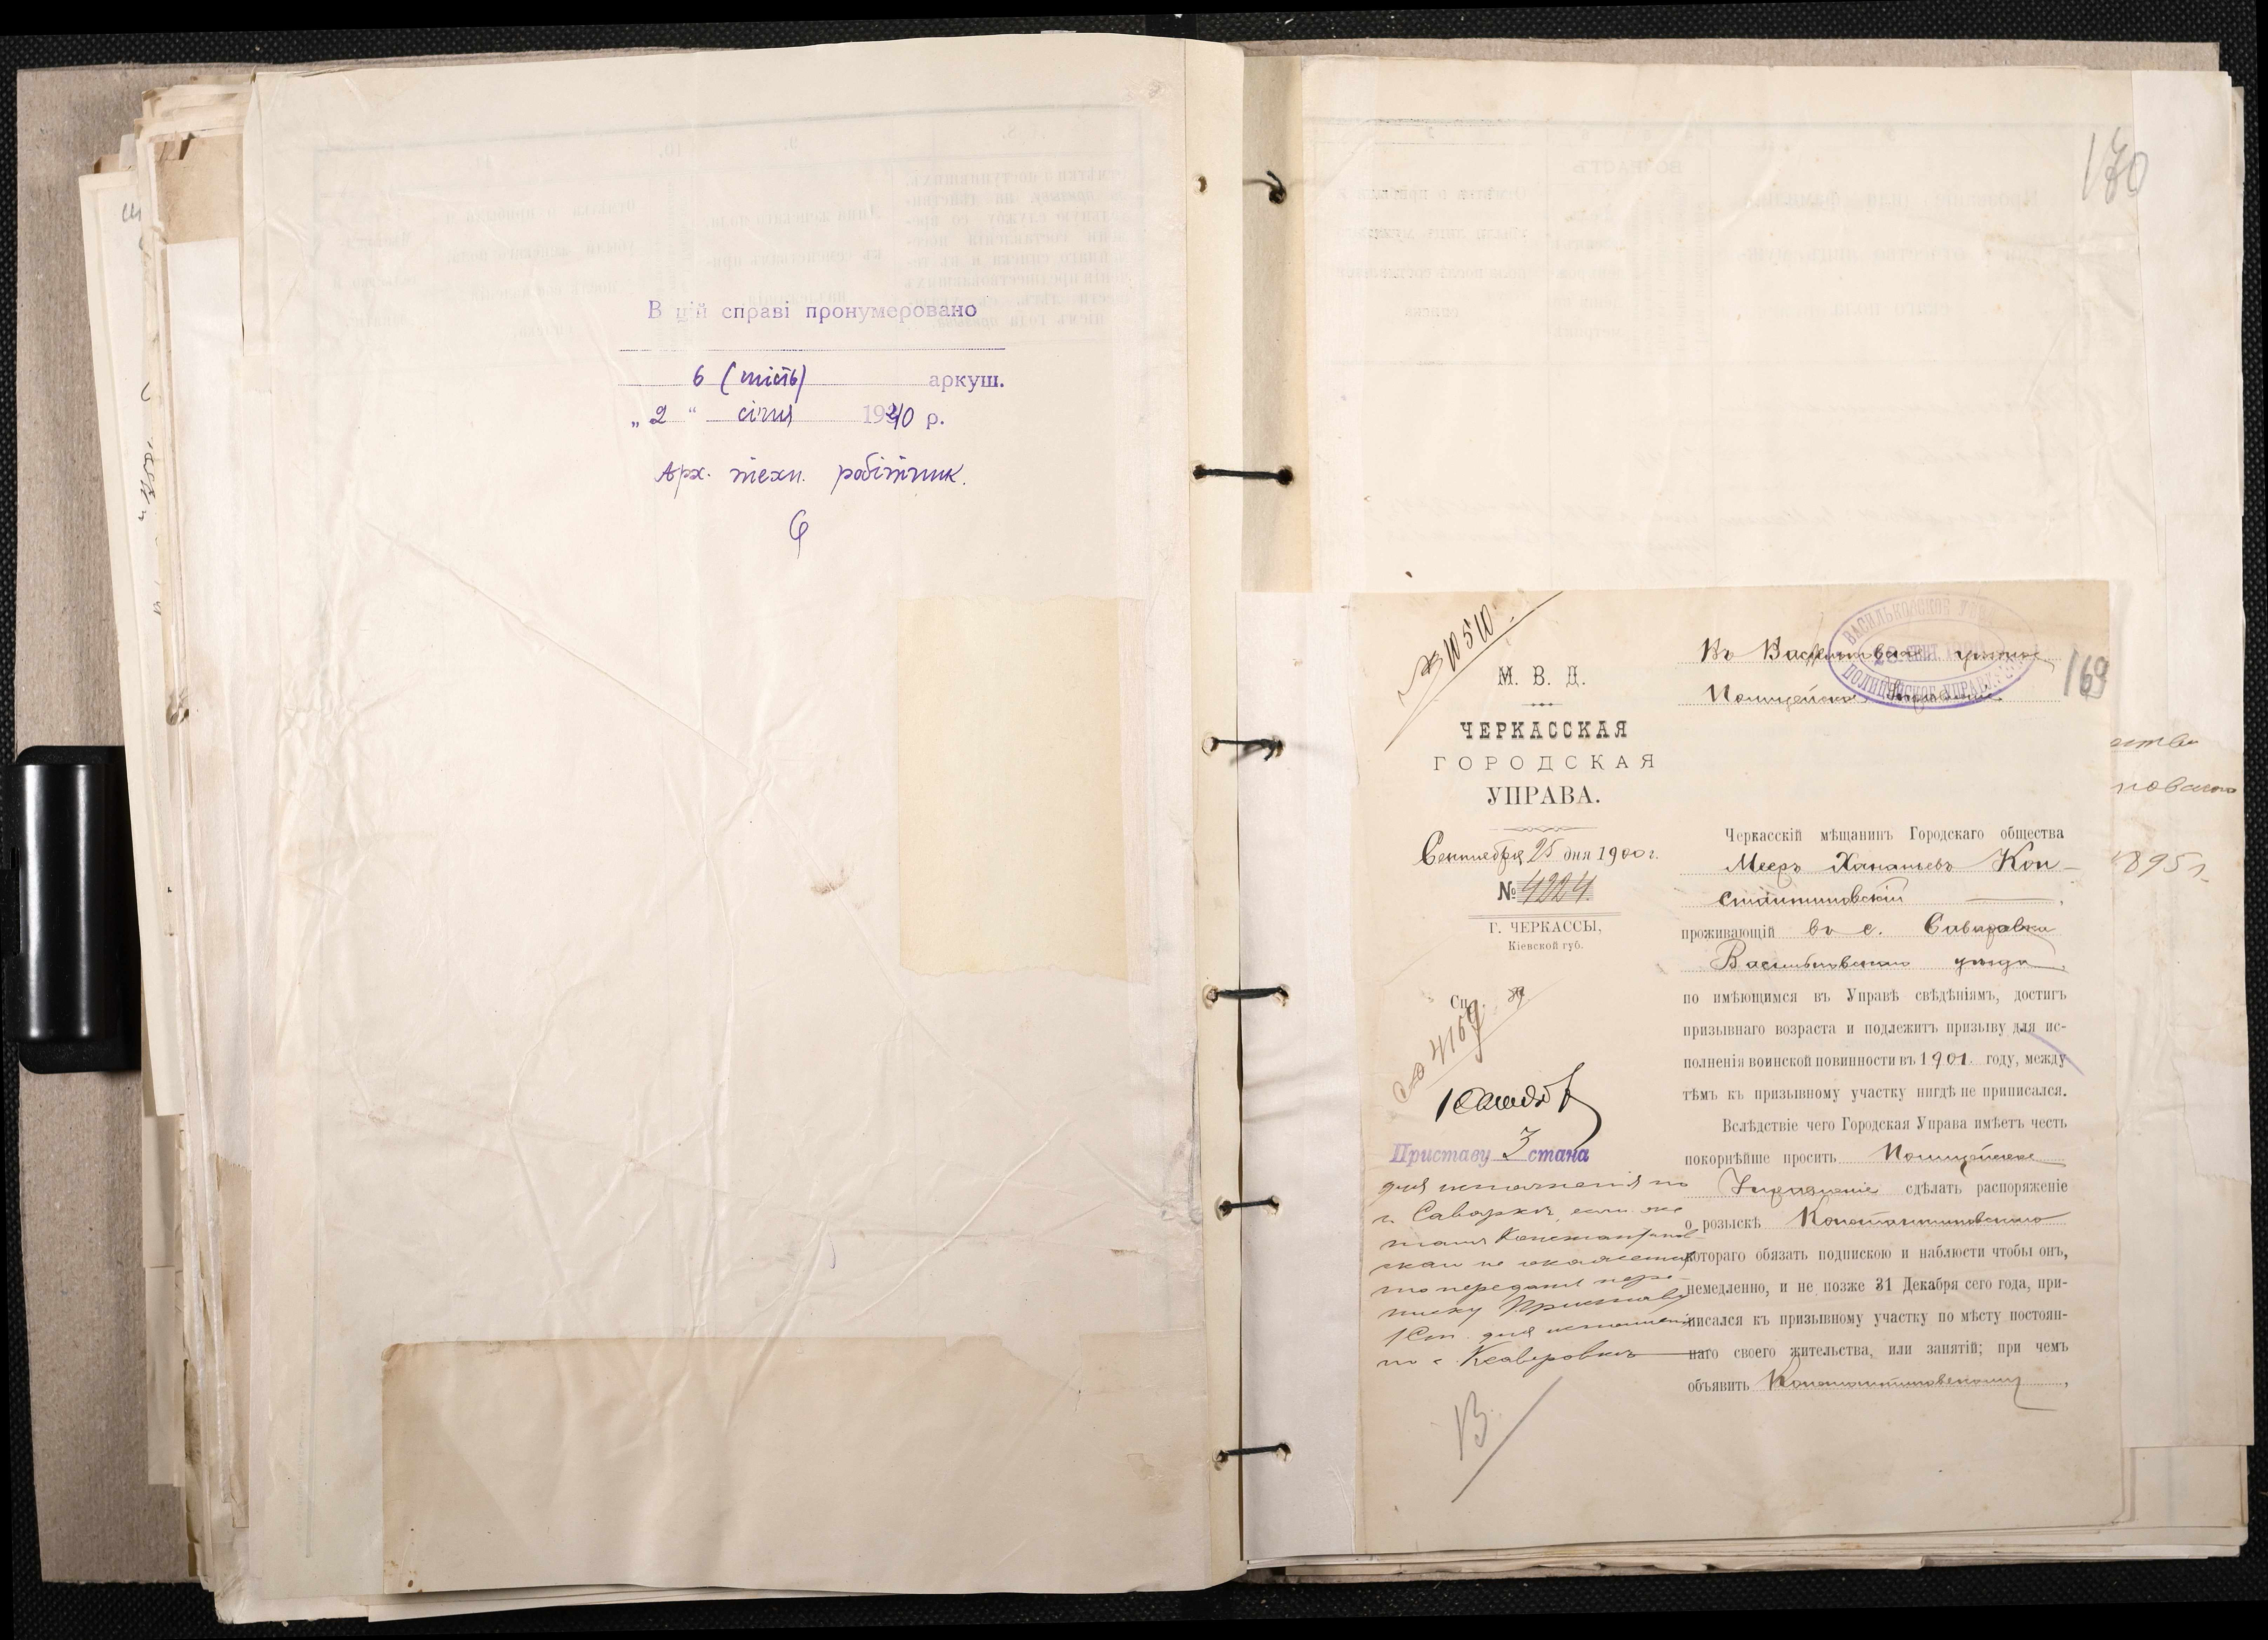 В цій справі пронумеровано
6 (шість) аркуш.
„2“ січня 1940 р.
Арх. техн. робітник.
170
169
№ 10510.
М. В. Д.
ЧЕРКАССКАЯ
ГОРОДСКАЯ
УПРАВА.
Сентября 25 дня 1900 г.
№ 4224
Г. ЧЕРКАССЫ,
Кіевской губ.
4169
Приставу 3 стана
для исполненія по
с. Саварки, если же
тамъ Константинов-
скаго не окажется
то передать пере-
писку Приставу
1 Ст. для исполненія
по с. Ксаверовкѣ
В
Въ Васильковское уѣздное
Полицейское Управленіе
ВАСИЛЬКОВСКОЕ
28 СЕНТ.
ПОЛИЦЕЙСКОЕ УПРАВЛ.
Черкасскій мѣщанинъ Городскаго общества
Мееръ Хананьевъ Кон-
стантиновскій,
проживающій въ с.
Васильковскаго уѣзда,
по имѣющимся въ Управѣ свѣдѣніямъ, достигъ
призывнаго возраста и подлежитъ призыву для ис-
полненія воинской повинности въ 1901 году, между
тѣмъ къ призывному участку нигдѣ не приписался.
Вслѣдствіе чего Городская Управа имѣетъ честь
покорнѣйше просить Полицейское
Управленіе сдѣлать распоряженіе
о розыскѣ Константиновскаго
котораго обязать подпискою и наблюсти чтобы онъ,
немедленно, и не позже 31 Декабря сего года, при-
писался къ призывному участку по мѣсту постоян-
наго своего жительства, или занятій; при чемъ
объявить Константиновскому,
1895 г.